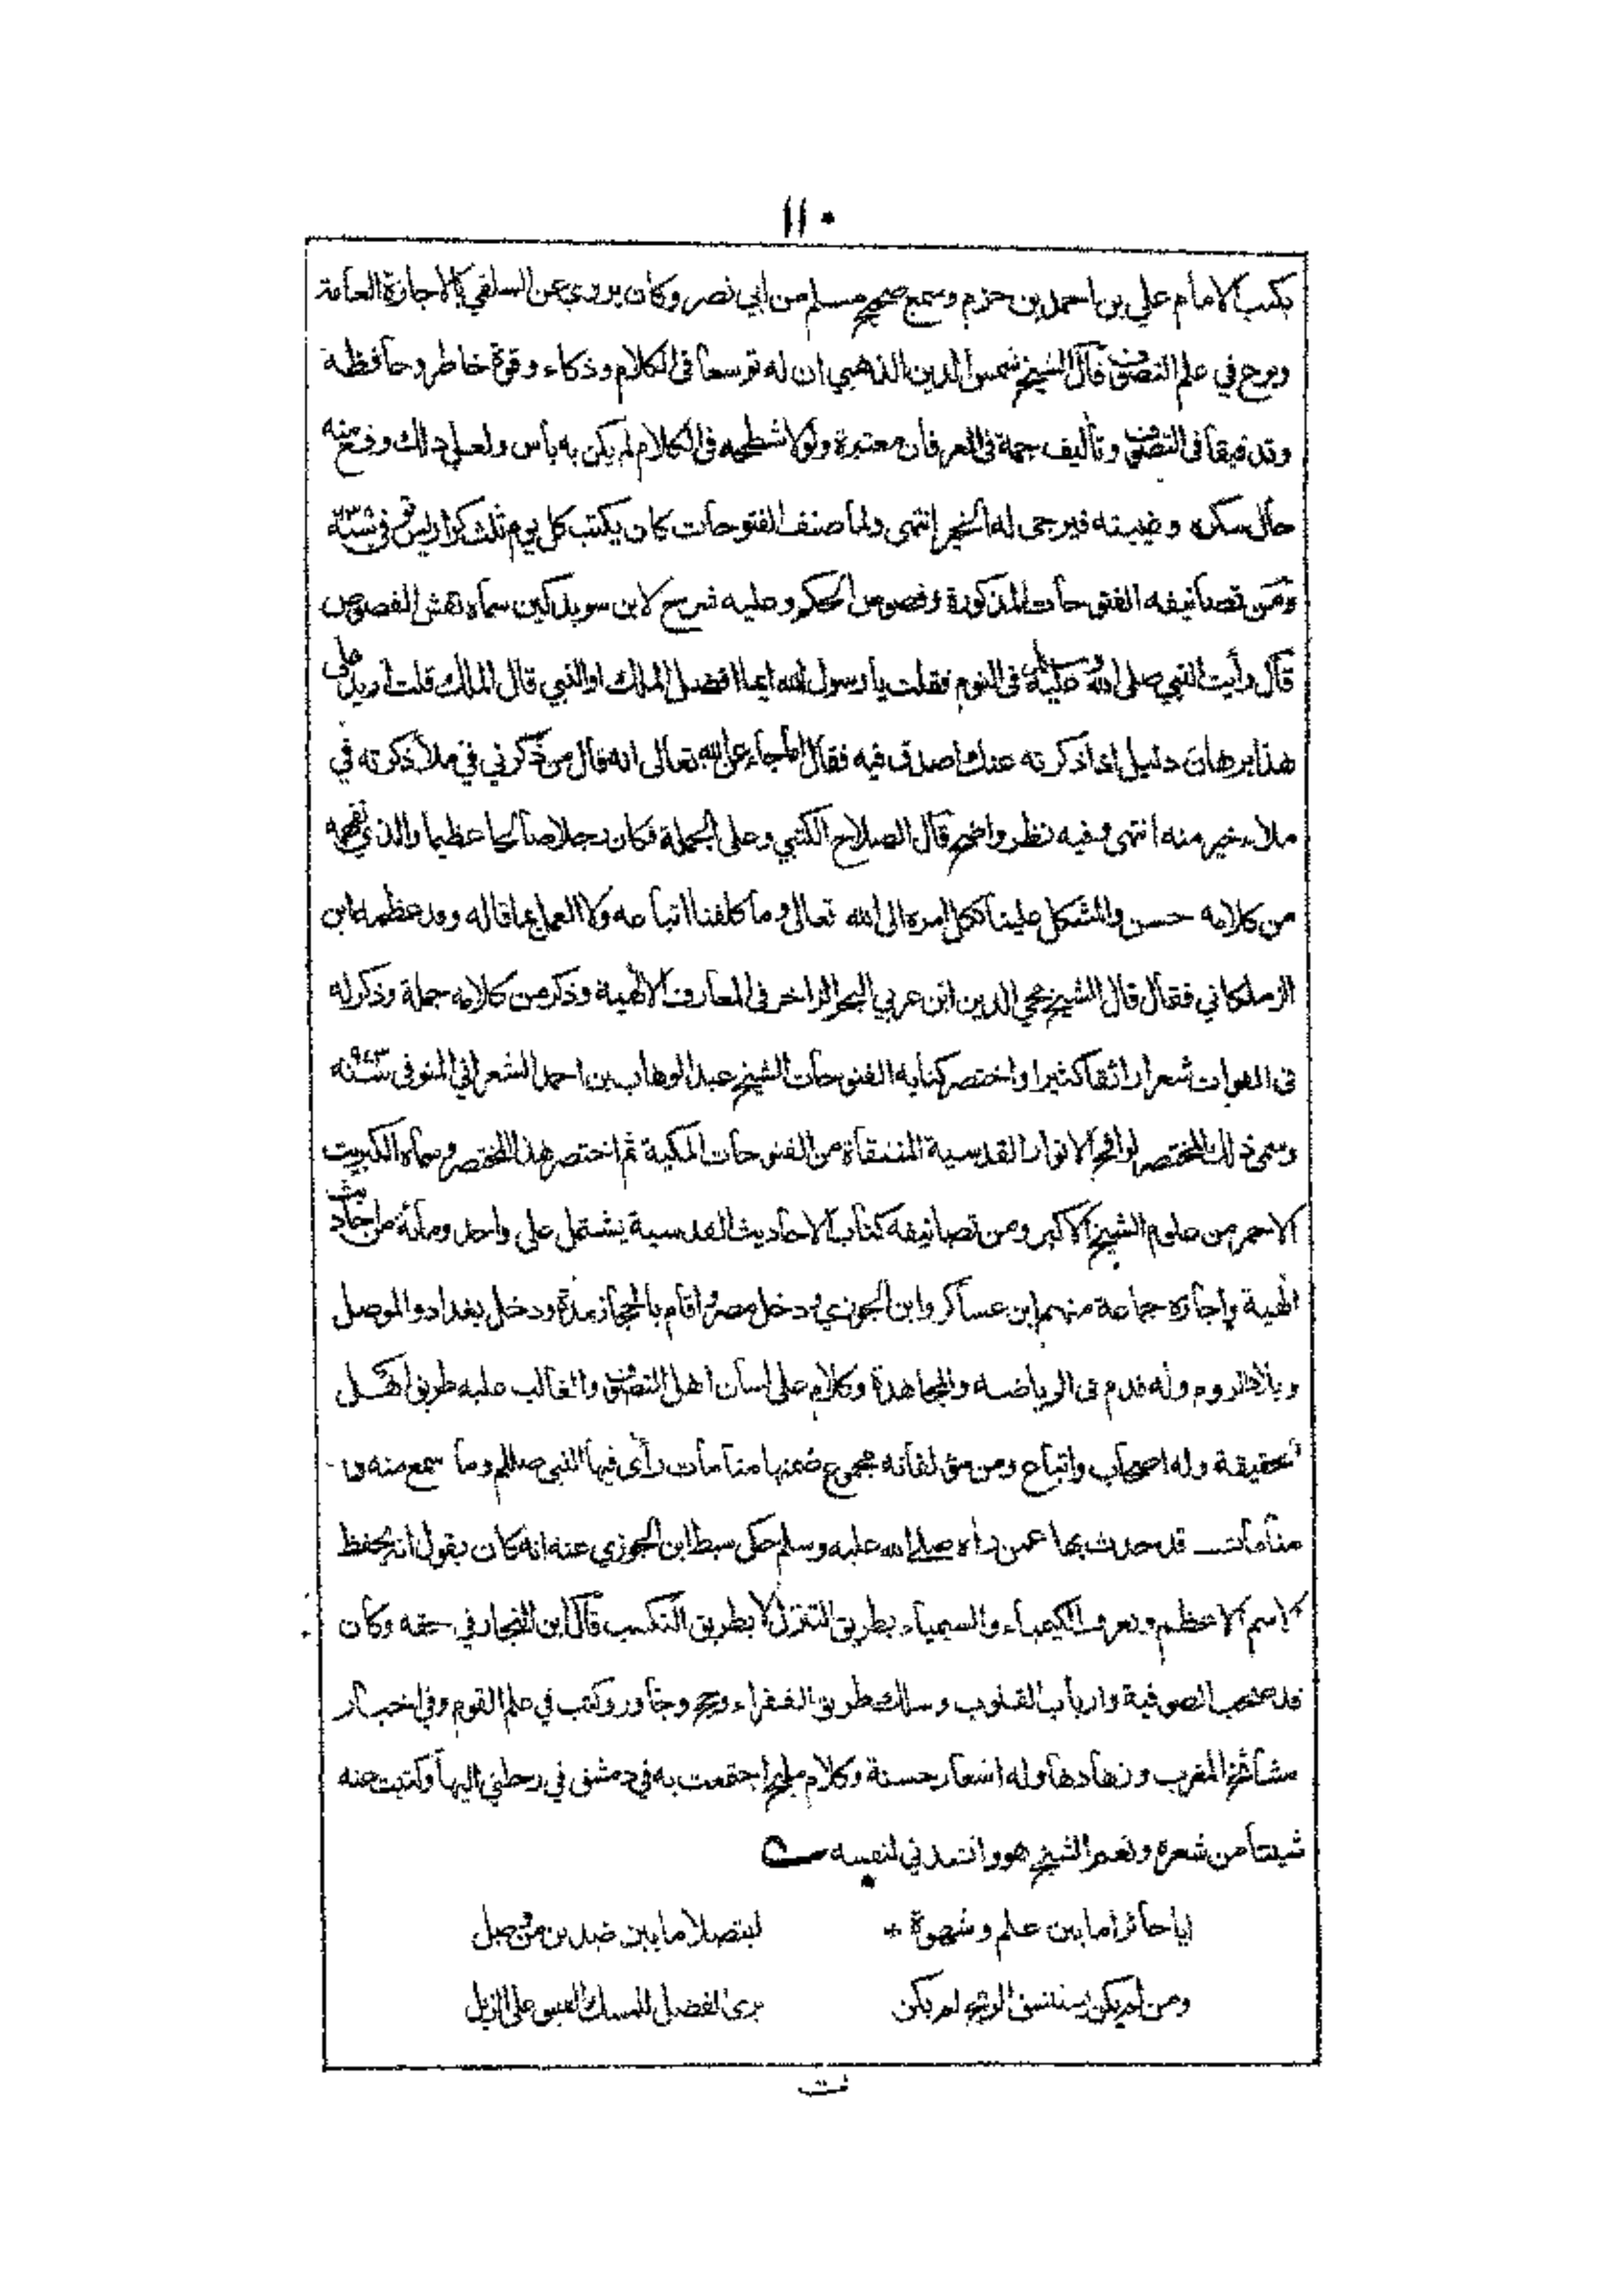 ١١٠
بكتب الامام علي بن احمد بن حزم وسمع صحيح مسلم من ابي نصر وكان يروي عن السلفي بالاجازة العامة
وبرع في علم التصوف قال الشيخ شمس الدين الذهبي ان له توسعا في الكلام وذكاء وقوة خاطر وحافظة
وتدقيقا في التصوف وتأليف جمة في العرفان معتبرة ولولا شطحه في الكلام لم يكن به بأس ولعل ذلك وقع منه
حال سكره وغيبته فيرجى له الخير انتهى ولما صنف الفتوحات كان يكتب كل يوم ثلث كراريس
ومن تصانيفه الفتوحات المذكورة وفصوص الحكم وعليه شرح لابن سويدكين سماه نقش الفصوص
قال رأيت النبي صلى الله عليه وسلم في النوم فقلت يا رسول الله ايما افضل الملك او النبي قال الملك قلت اريد على
هذا برهان دليل اذا ذكرته عنك اصدق فيه فقال اما جاء عن الله تعالى انه قال من ذكرني في ملأ ذكرته في
ملاء خير منه انتهى وفيه نظر واضح قال الصلاح الكتبي وعلى الجملة فكان رجلا صالحا عظيما والذي نفهمه
من كلامه حسن والمشكل علينا نكل امره الى الله تعالى وما كلفنا اتباعه ولا العمل بما قاله وقد عظمه ابن
الزملكاني فقال قال الشيخ محي الدين ابن عربي البحر الزاخر في المعارف الالهية وذكر من كلامه جملة وذكر له
في الفوات شعرا رائقا كثيرا واختصر كتابه الفتوحات الشيخ عبد الوهاب بن احمد الشعراني المتوفى سنة ٩٧٣
وسمى ذلك المختصر لواقح الانوار القدسية المنتقاة من الفتوحات المكية ثم اختصر هذا المختصر وسماه الكبريت
الاحمر من علوم الشيخ الاكبر ومن تصانيفه كتاب الاحاديث القدسية يشتمل على واحد ومائة من احاديث
الهية واجازه جماعة منهم ابن عساكر وابن الجوزي ودخل مصر واقام بالحجاز مدة ودخل بغداد والموصل
وبلاد الروم وله قدم في الرياضة والمجاهدة وكلام على لسان اهل التصوف والغالب عليه طريق اهل
الحقيقة وله اصحاب واتباع ومن مؤلفاته مجموع ضمنها منامات رأى فيها النبي صللم وما سمع منه و
منامات قد حدث بها عمن رأه صلى الله عليه وسلم حكى سبط ابن الجوزي عنه انه كان يقول انه يحفظ
الاسم الاعظم ويعرف الكيمياء والسيمياء بطريق التنزل لا بطريق التكسب قال ابن النجار في حقه وكان
قد صحب الصوفية وارباب القلوب وسلك طريق الفقراء وحج وجاور وكتب في علم القوم وفي اخبار
مشائخ المغرب وزهادها وله اشعار حسنة وكلام مليح اجتمعت به في دمشق في رحلتي اليها وكتبت عنه
شيئا من شعره ونعم الشيخ هو وانشدني لنفسه
ايا حائرا ما بين علم وشهوة + ليتصلا ما بين ضدين من وصل
ومن لم يكن يستنشق الريح لم يكن يرى الفضل للمسك الفتيق على الزبل